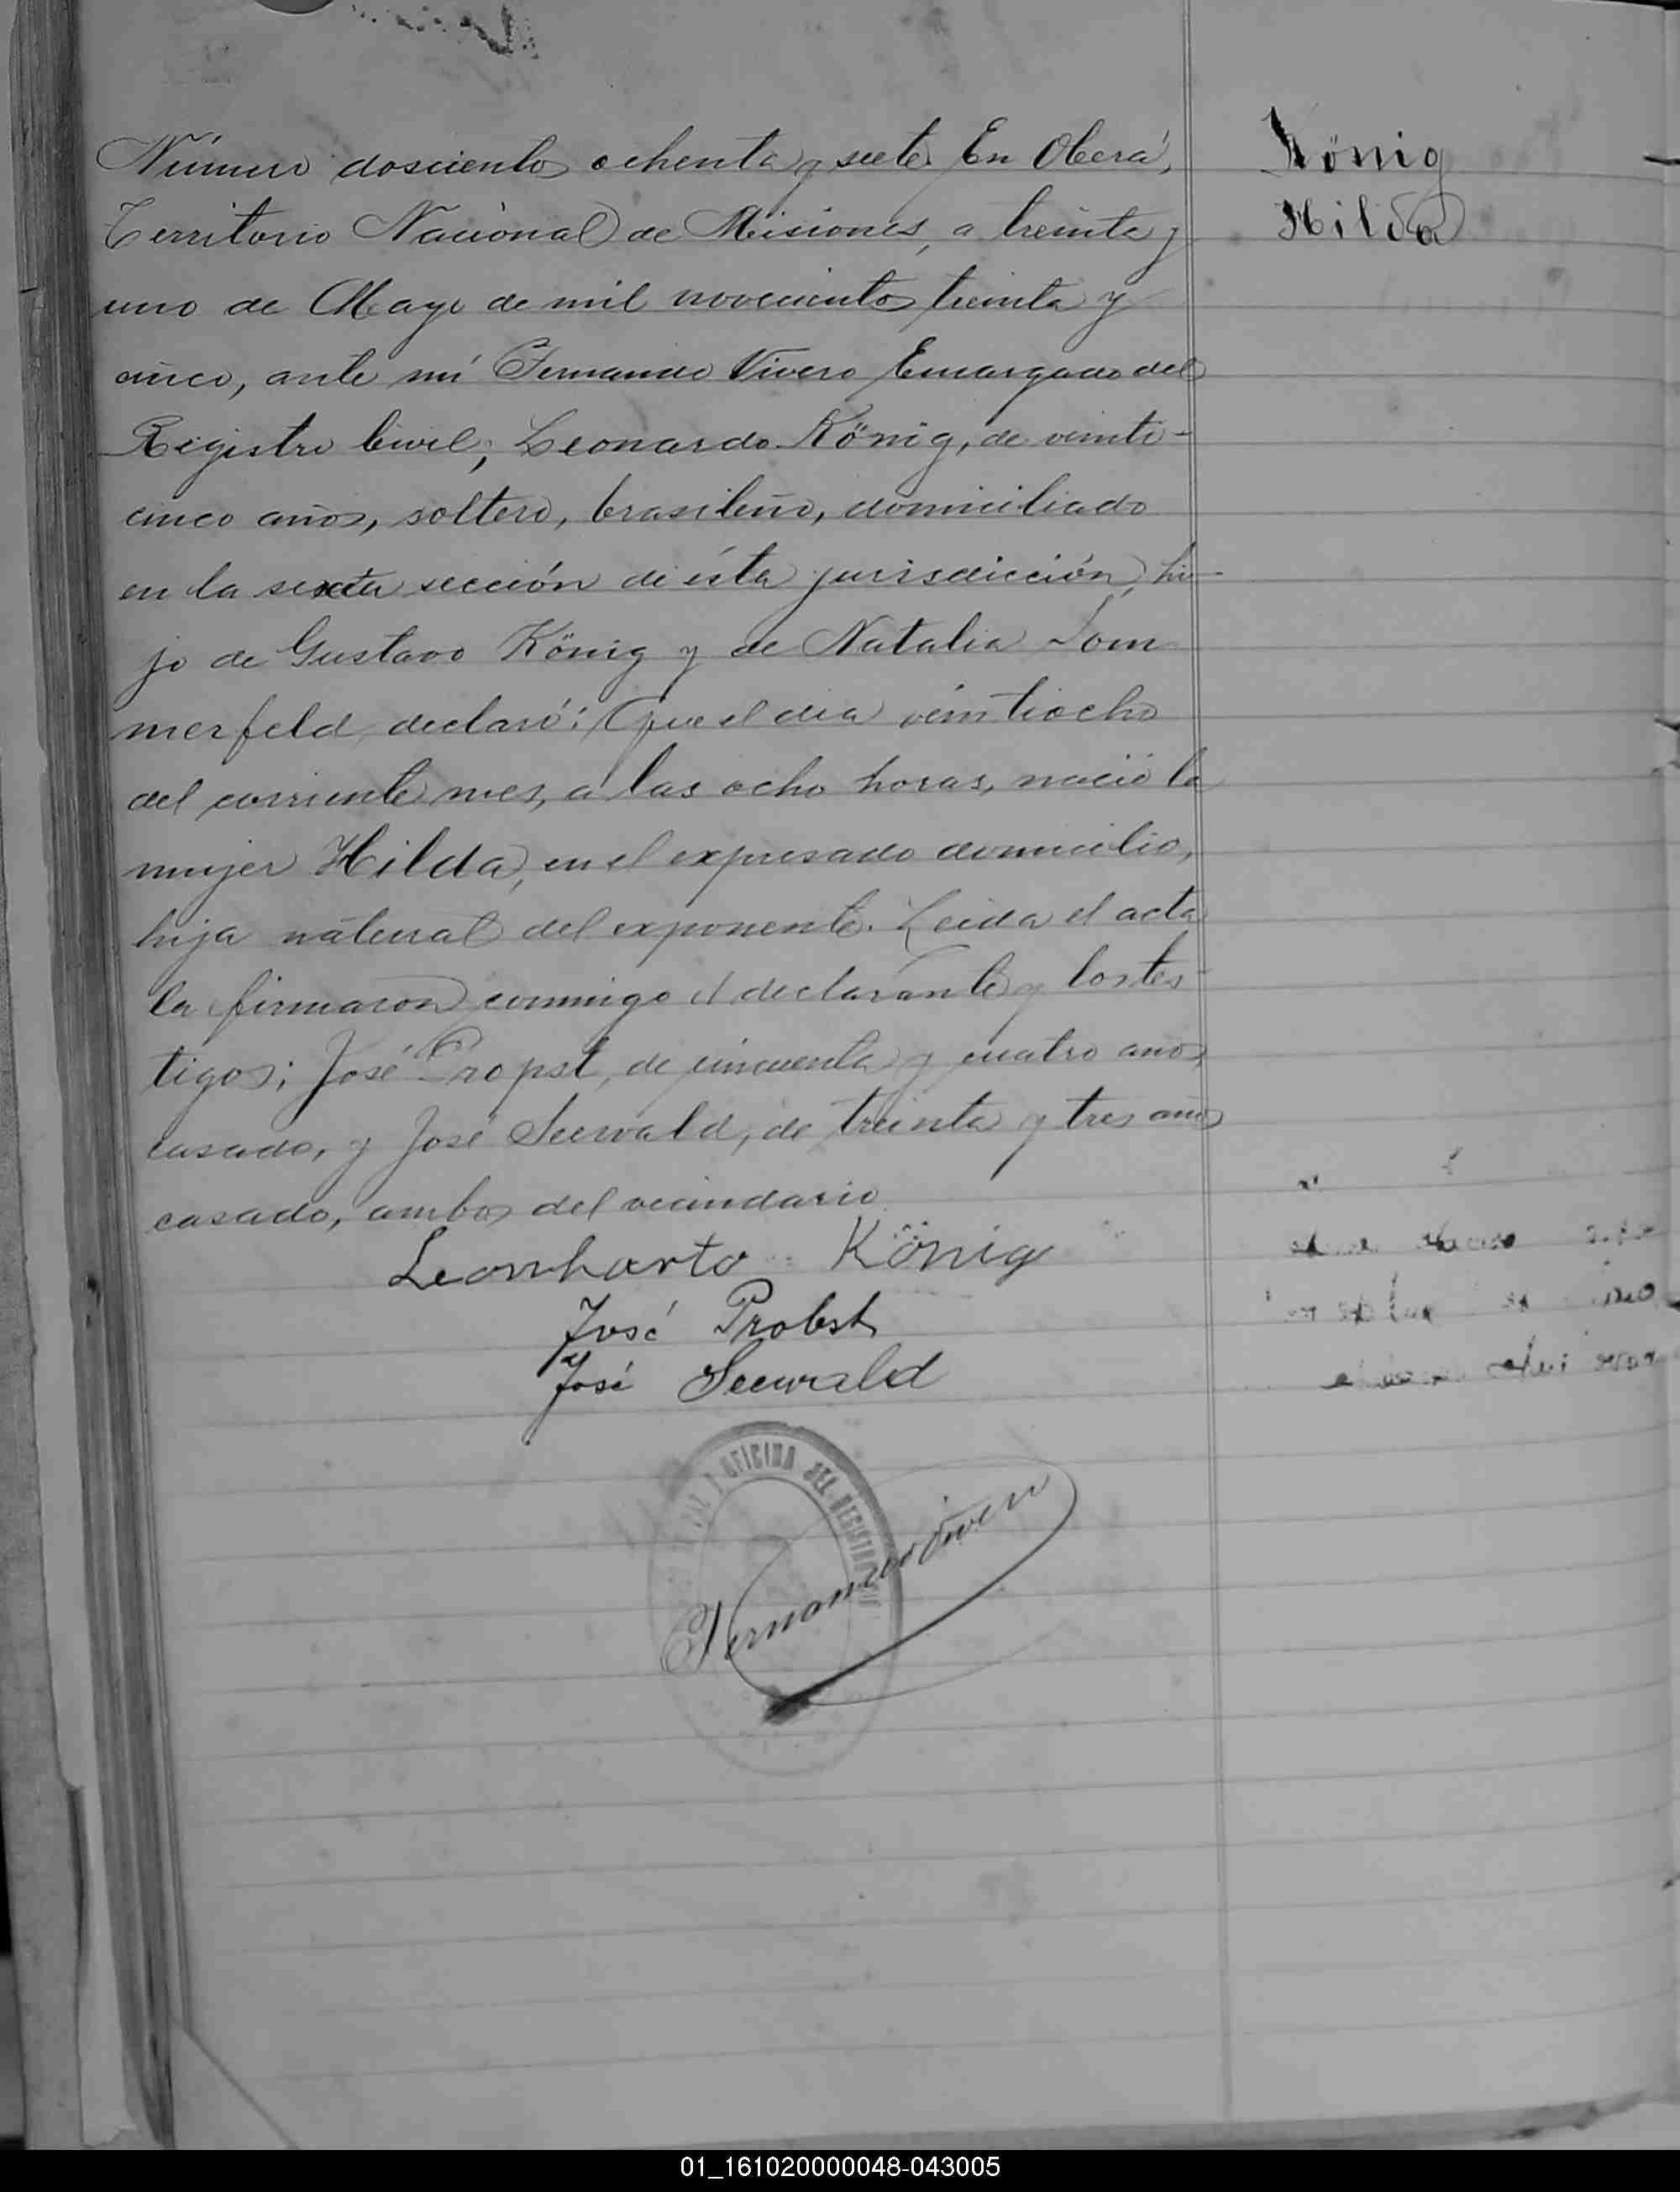 Número doscientos ochenta y siete. En Oberá,
Territorio Nacional de Misiones, a treinta y
uno de Mayo de mil novecientos treinta y
cinco, ante mí Fernando Vivero Encargado del
Registro Civil, Leonardo König, de veinti-
cinco años, soltero, brasileño, domiciliado
en la sexta sección de ésta jurisdicción, hi-
jo de Gustavo König y de Natalia Som
merfeld, declaró: Que el dia veintiocho
del corriente mes, a las ocho horas, nació la
mujer Hilda, en el expresado domicilio,
hija natural del exponente. Leida el acta
la firmaron conmigo el declarante y los tes-
tigos; José Propst, de cincuenta y cuatro años,
casado, y José Seewald, de treinta y tres años
casado, ambos del vecindario.
Leonharto König
José Probst
José Seewald
OFICINA DEL REGISTRO
Fernando Vivero
König
Hilda
01_161020000048-043005